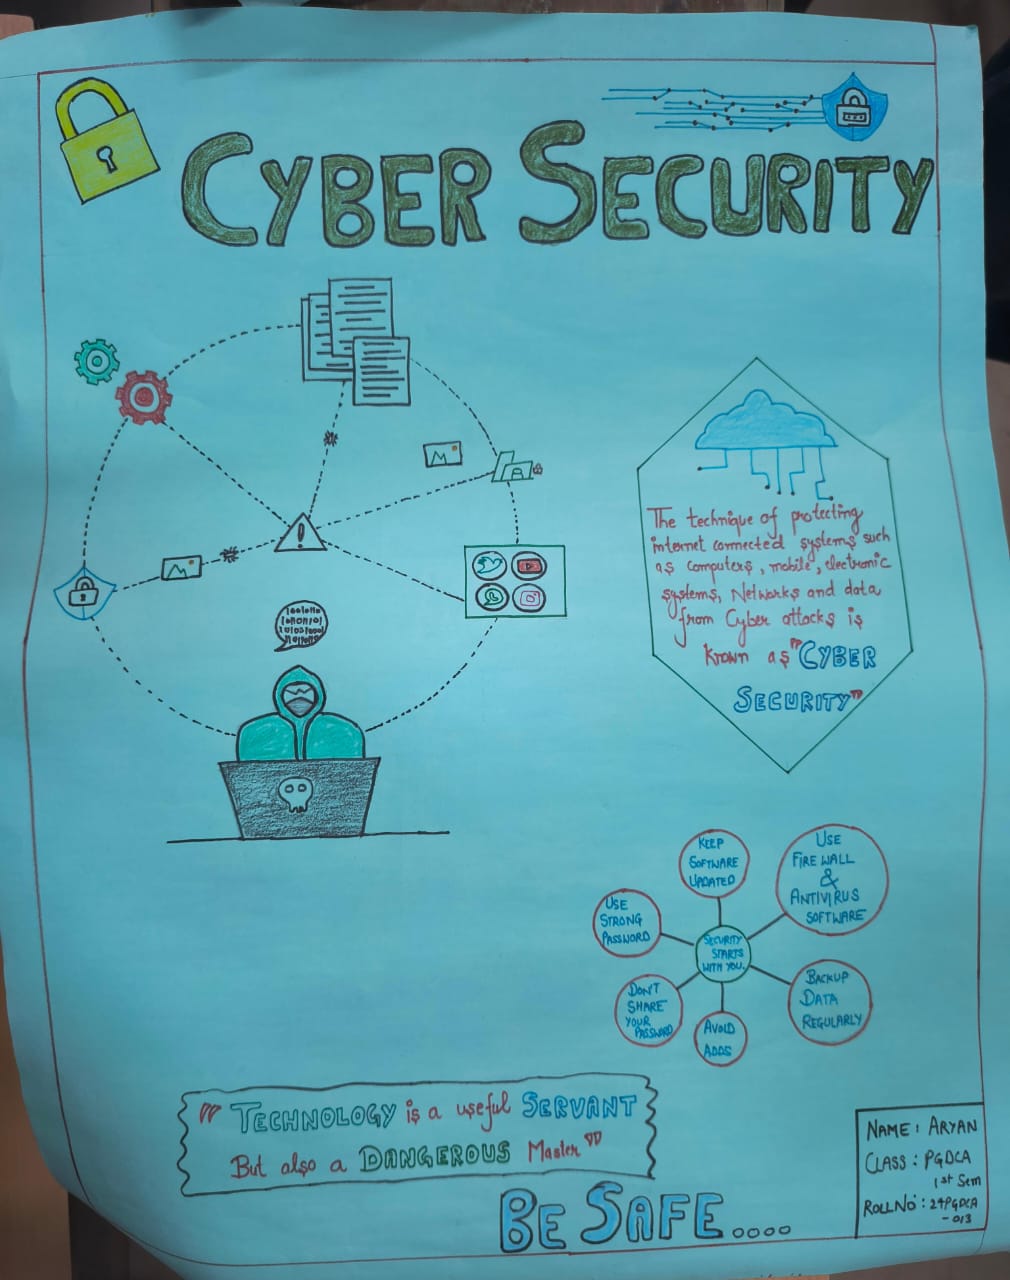 CYBER SECURITY
The technique of protecting
internet connected systems such
as computers, mobile, electronic
systems, Networks and data
from Cyber attacks is
known as "CYBER
SECURITY"
KEEP
SOFTWARE
UPDATED
USE
FIREWALL
&
ANTIVIRUS
SOFTWARE
USE
STRONG
PASSWORD
SECURITY
STARTS
WITH YOU.
DON'T
SHARE
YOUR
PASSWORD
AVOID
ADDS
BACKUP
DATA
REGULARLY
"TECHNOLOGY is a useful SERVANT
But also a DANGEROUS Master"
BE SAFE....
NAME: ARYAN
CLASS: PGDCA
1st Sem
ROLLNO: 24PGDCA
-013